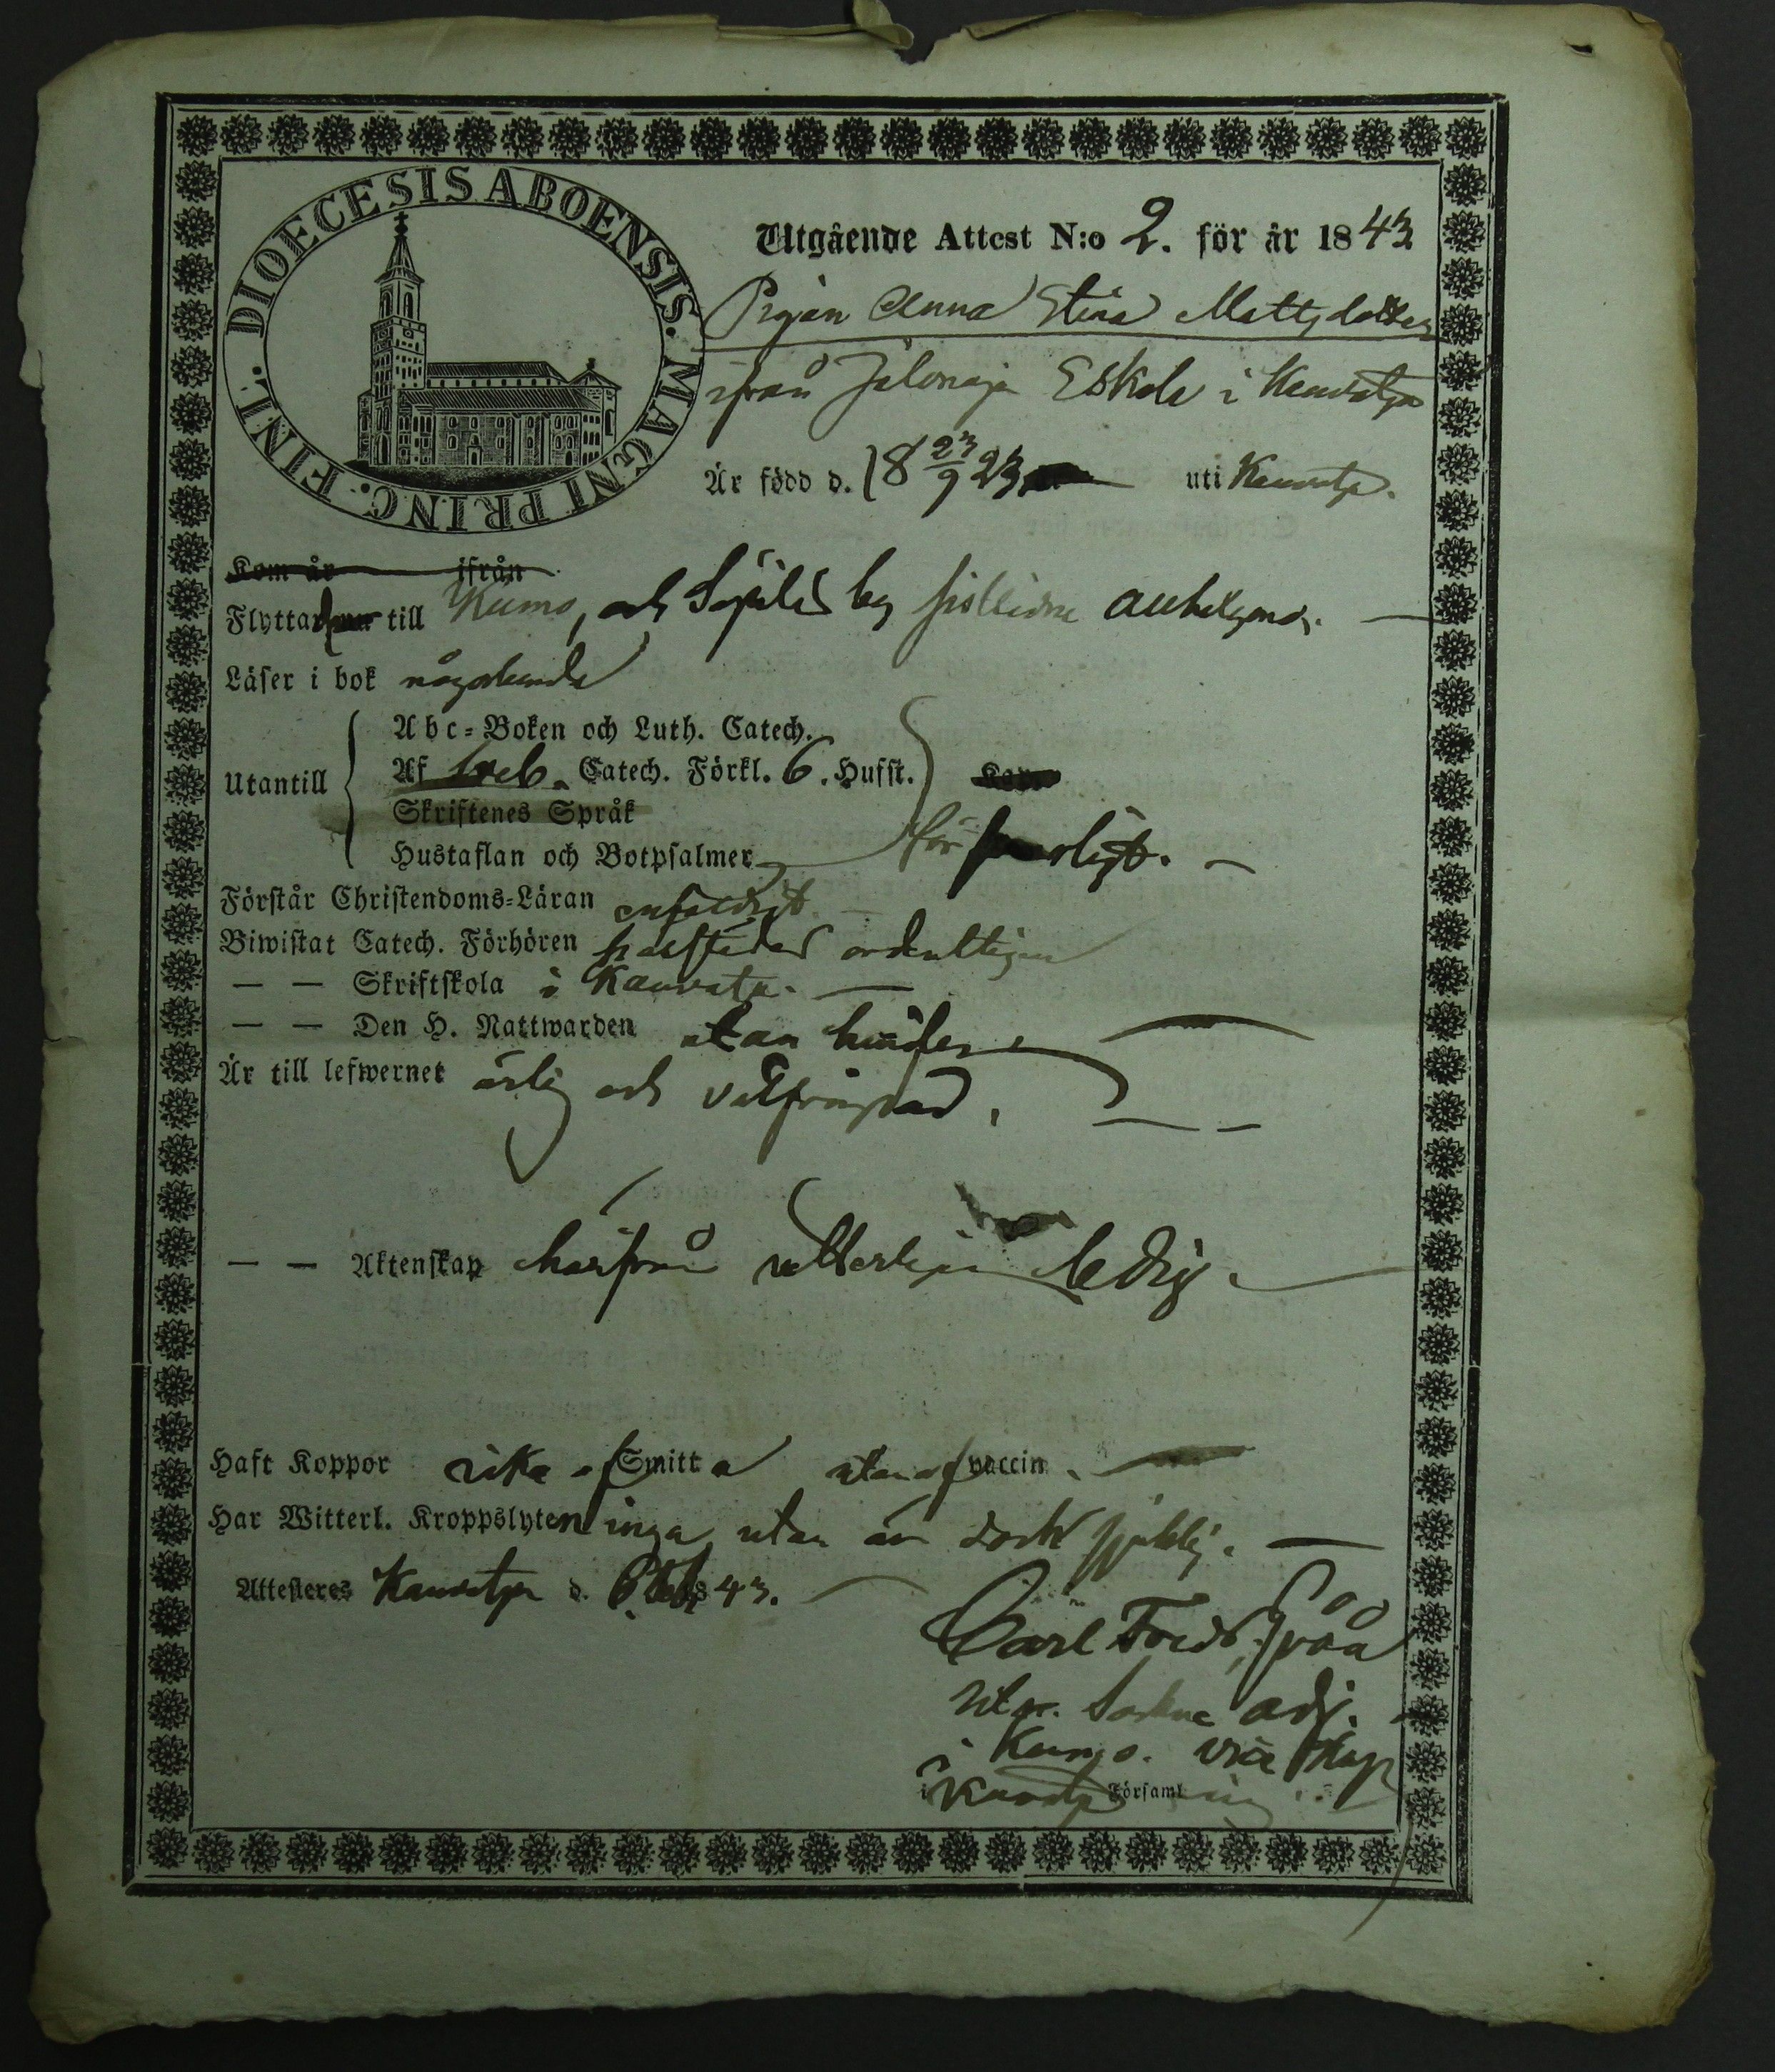 DIOECESIS ABOENSIS. MAGNI PRINC. FINL.
Utgående Attest N:o 2. för år 1843
Pigan Anna Stina Mattsdotter
ifrån Jalonoja Eskola i Kauvatsa
Är född d. 18 23/9 23 uti Kauvatsa.
Kom år ifrån
Flyttar till Kumo, och by
Läser i bok någorlunda
Utantill
Abc-Boken och Luth. Catech.
Af Sveb. Catech. Förkl. 6. Hufst.
Skriftenes Språk
Hustaflan och Botpsalmer
försvarligt.
Förstår Christendoms-Läran enfaldigt
Biwistat Catech. Förhören ordentligen
— — Skriftskola i Kauvatsa.
— — Den H. Nattwarden utan hinder
Är till lefwernet ärlig och välfrägdad.
— — Aktenskap härifrån vetterligen ledig
Haft Koppor af Smitta utan af vaccin.
Har Witterl. Kroppslyten inga utan är dock sjuklig.
Attesteres Kauvatsa d. 6 Feb 1843.
Carl Fredr.
adj.
i Kumo. vice Kap
i Kauvatsa Församling